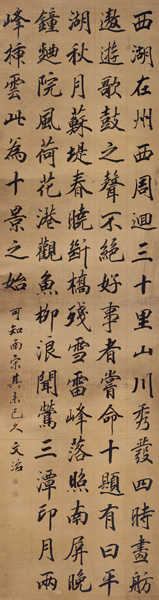 西湖在州西周迴三十里山川秀發四時畫舫
遨遊歌鼓之聲不絕好事者嘗命十題有曰平
湖秋月蘇堤春曉斷橋殘雪雷峰落照南屏晚
鐘麯院風荷花港觀魚柳浪聞鶯三潭印月兩
峰插雲此為十景之始 可知南宋其來已久 文治